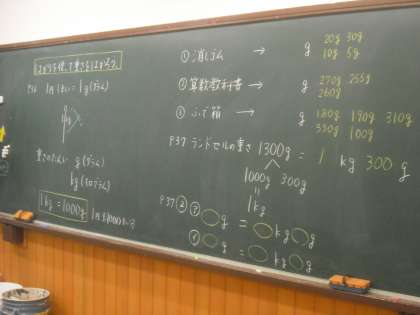 はかりを使って重さをはかろう。
1円1まい＝1g(グラム)
重さのたんい g(グラム)
kg(キログラム)
1kg＝1000g
① 消しゴム → g 20g 30g
10g 5g
② 算数教科書 → g 270g 255g
260g
③ ふで箱 → g 180g 190g 310g
330g 100g
P37 ランドセルの重さ 1300g = 1 kg 300 g
1000g 300g
1kg
P37② ㋐ g = kg g
㋑ g = kg g